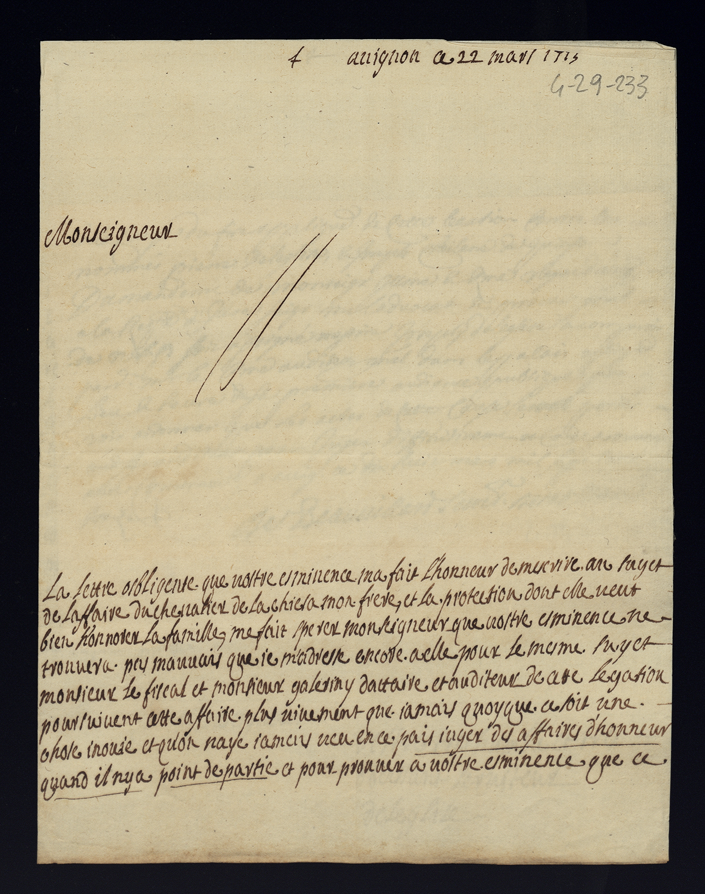 avignon ce 22 mars 1713
4-29-233
Monseigneur
La lettre obligente que vostre esminence ma fait l'honneur de mescrire au sujet
de laffaire du chevalier de la chiesa mon frere, et la protection dont elle veut
bien honnorer la famille, me fait sperer monseigneur que vostre esminence ne
trouvera pas mauvais que ie madresse encore a elle pour le mesme sujet
monsieur le fiscal et monsieur galeriny dattaire et auditeur de cete legation
poursuivent cette affaire plus vivement que iamais quoyque ce soit une
chose inouie et quon naye iamais veu en ce pais iuger des affaires dhonneur
quand il nya point de partie et pour prouver a vostre esminence que ce